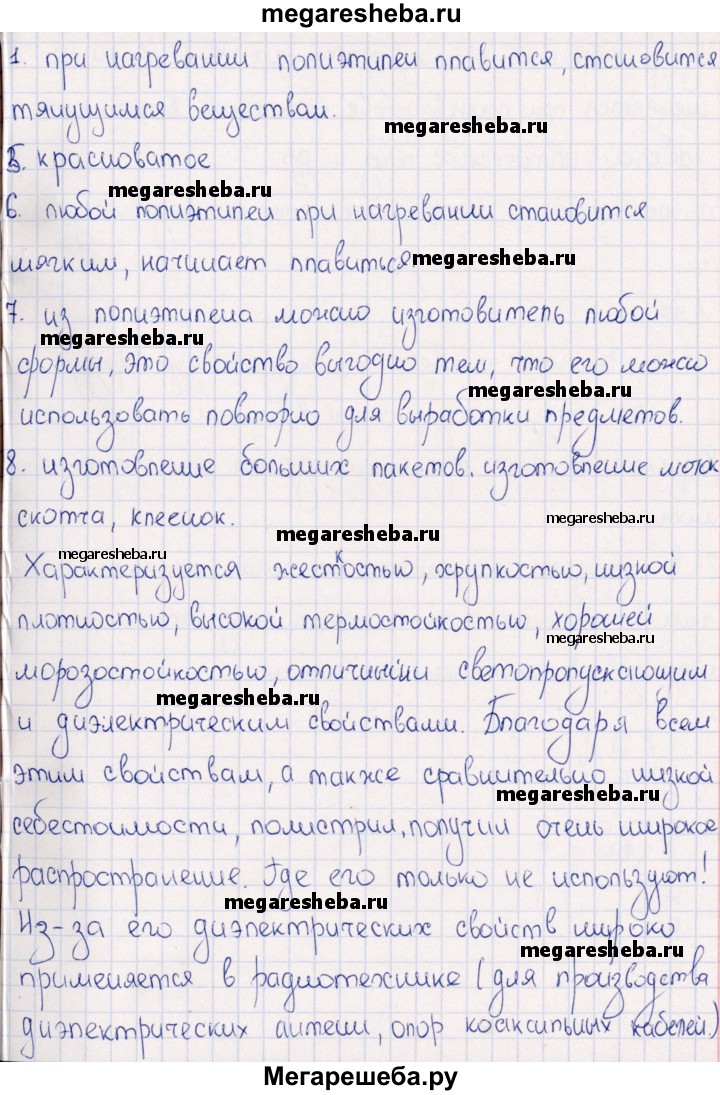 megaresheba.ru
1. при нагревании полиэтилен плавится, становится
тянущимся веществам.
megaresheba.ru
5. красноватое
megaresheba.ru
6. любой полиэтилен при нагревании становится
мягким, начинает плавиться
megaresheba.ru
7. из полиэтилена можно изготовитель любой
megaresheba.ru
формы, это свойство выгодно тем, что его можно
megaresheba.ru
использовать повторно для выработки предметов.
8. изготовление больших пакетов. изготовление моток
megaresheba.ru
скотча, клеенок.
megaresheba.ru
megaresheba.ru
Характеризуется жесткостью, хрупкостью, низкой
плотностью, высокой термостойкостью, хорошей
megaresheba.ru
морозостойкостью, отличными светопропускающим
megaresheba.ru
и диэлектрическим свойствами. Благодаря всем
этим свойствам, а также сравнительно низкой
megaresheba.ru
себестоимости, полистрил, получил очень широкое
распространение. Где его только не используют!
megaresheba.ru
Из-за его диэлектрических свойств широко
megaresheba.ru
применяется в радиотехнике (для производства
диэлектрических антенн, опор коаксильных кабелей.)
Мегарешеба.ру